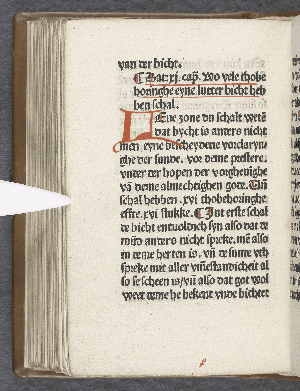 van der bicht.
¶ Dat xj. cap̄. Wo vele thobe
horinghe eyne lutter bicht heb
ben schal.
LEue zone du schalt wetē
dat bycht is anders nicht
men eyne bescheydene vorclaryn
ghe der sunde. vor deme prestere.
vnder der hopen der vorgheuinghe
vā deme almechtighen gote. Vn̄
schal hebben. xvi thobehoringhe
efte. xvi stukke. ¶ Int erste schal
de bicht entuoldich syn also dat de
mūd anders nicht spreke. mē also
in deme herten is. vn̄ de sunde vth
spreke mit aller vmmestandicheit al
so se scheen is/ vn̄ also dat got wol
weet deme he bekent vnde bichtet